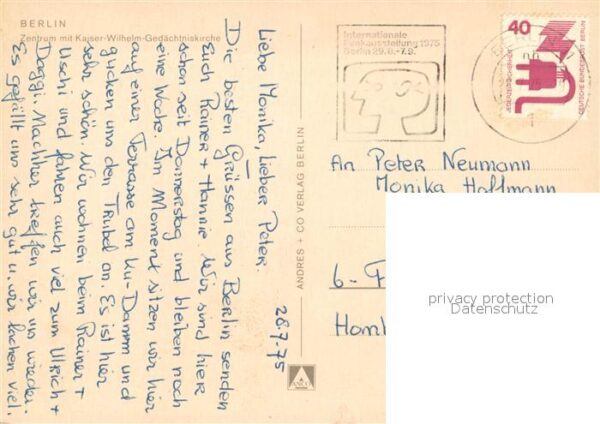 BERLIN
Zentrum mit Kaiser-Wilhelm-Gedächtniskirche
28.7.75
Liebe Monika, lieber Peter.
Die besten Grüssen aus Berlin senden
Euch Rainer + Hannie. Wir sind hier
schon seit Donnerstag und bleiben noch
eine Woche. Im Moment sitzen wir hier
auf einer Terrasse am Ku-Damm und
gucken uns den Trubel an. Es ist hier
sehr schön. Wir wohnen beim Rainer +
Uschi und fahren auch viel zum Ulrich +
Daggi. Nachher treffen wir uns wieder.
Es gefällt uns sehr gut u. wir lachen viel.
ANDRES + CO VERLAG BERLIN
ANCO
Internationale
Funkausstellung 1975
Berlin 29.8.-7.9.
40
DEUTSCHE BUNDESPOST BERLIN
An Peter Neumann
Monika Hoffmann
6-F
Homb
privacy protection
Datenschutz